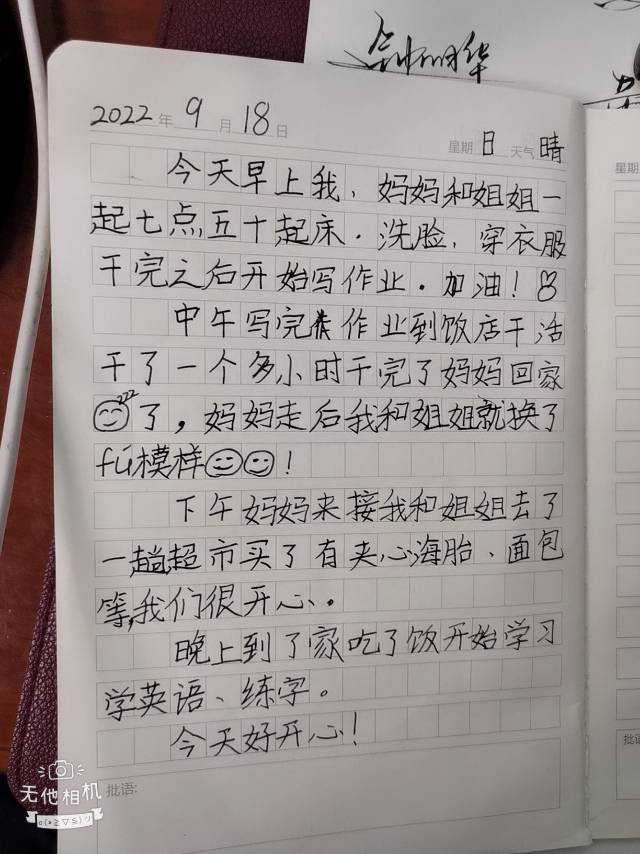 2022年9月18日
星期日 天气晴
今天早上我、妈妈和姐姐一
起七点五十起床.洗脸、穿衣服
干完之后开始写作业.加油!
中午写完作业到饭店干活
干了一个多小时干完了妈妈回家
zzz了,妈妈走后我和姐姐就换了
fú模样!
下午妈妈来接我和姐姐去了
一趟超市买了有夹心海胎、面包
等,我们很开心。
晚上到了家吃了饭开始学习
学英语、练字。
今天好开心!
批语:
无他相机
星期
批语